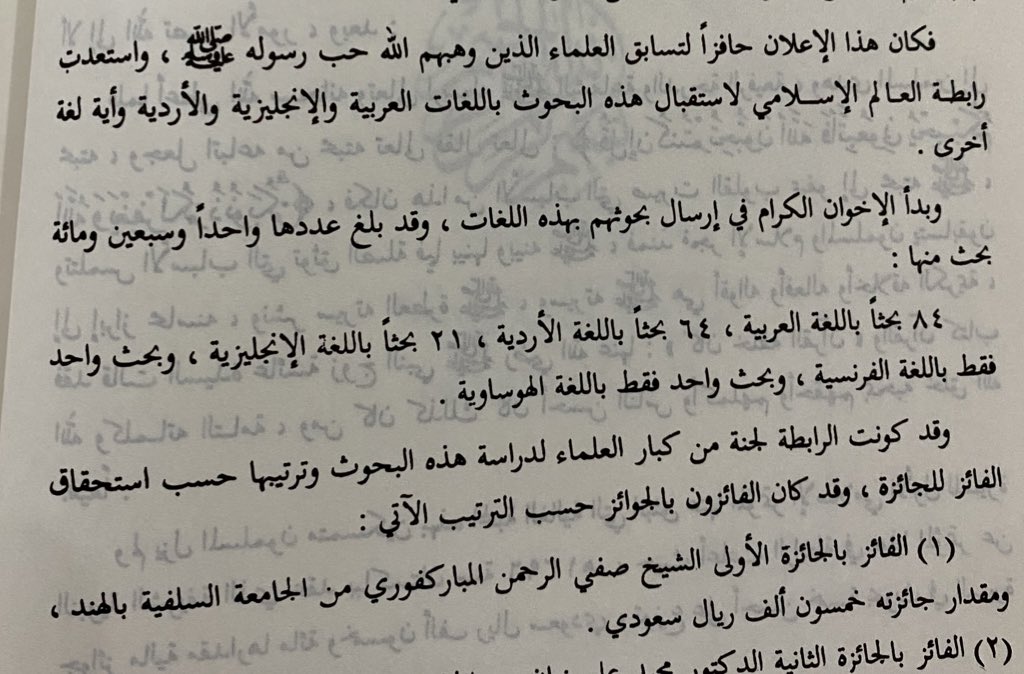 فكان هذا الإعلان حافزاً لتسابق العلماء الذين وهبهم الله حب رسوله ﷺ ، واستعدت
رابطة العالم الإسلامي لاستقبال هذه البحوث باللغات العربية والإنجليزية والأردية وأية لغة
أخرى .
وبدأ الإخوان الكرام في إرسال بحوثهم بهذه اللغات ، وقد بلغ عددها واحداً وسبعين ومائة
بحث منها :
٨٤ بحثاً باللغة العربية ، ٦٤ بحثاً باللغة الأردية ، ٢١ بحثاً باللغة الإنجليزية ، وبحث واحد
فقط باللغة الفرنسية ، وبحث واحد فقط باللغة الهوساوية .
وقد كونت الرابطة لجنة من كبار العلماء لدراسة هذه البحوث وترتيبها حسب استحقاق
الفائز للجائزة ، وقد كان الفائزون بالجوائز حسب الترتيب الآتي :
(١) الفائز بالجائزة الأولى الشيخ صفي الرحمن المباركفوري من الجامعة السلفية بالهند ،
ومقدار جائزته خمسون ألف ريال سعودي .
(٢) الفائز بالجائزة الثانية الدكتور